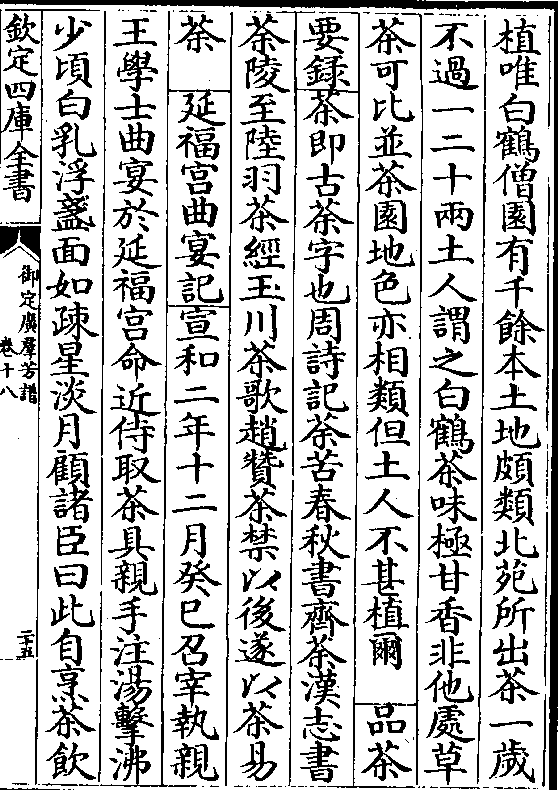 植唯白鶴僧園有千餘本土地頗類北苑所出茶一歲
不過一二十兩土人謂之白鶴茶味極甘香非他處草
茶可比並茶園地色亦相類但土人不甚植爾 品茶
要録茶即古荼字也周詩記荼苦春秋書齊荼漢志書
荼陵至陸羽茶經玉川茶歌趙贊茶禁以後遂以茶易
荼 延福宫曲宴記宣和二年十二月癸巳召宰執親
王學士曲宴於延福宫命近侍取茶具親手注湯擊沸
少頃白乳浮盞面如疎星淡月顧諸臣曰此自烹茶飲
欽定四庫全書
御定廣羣芳譜
卷十八
二十五